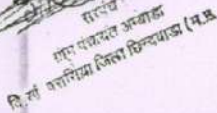 सरपंच
ग्राम पंचायत अम्बाडा
वि.खं. परासिया जिला छिन्दवाडा (म.प्र.